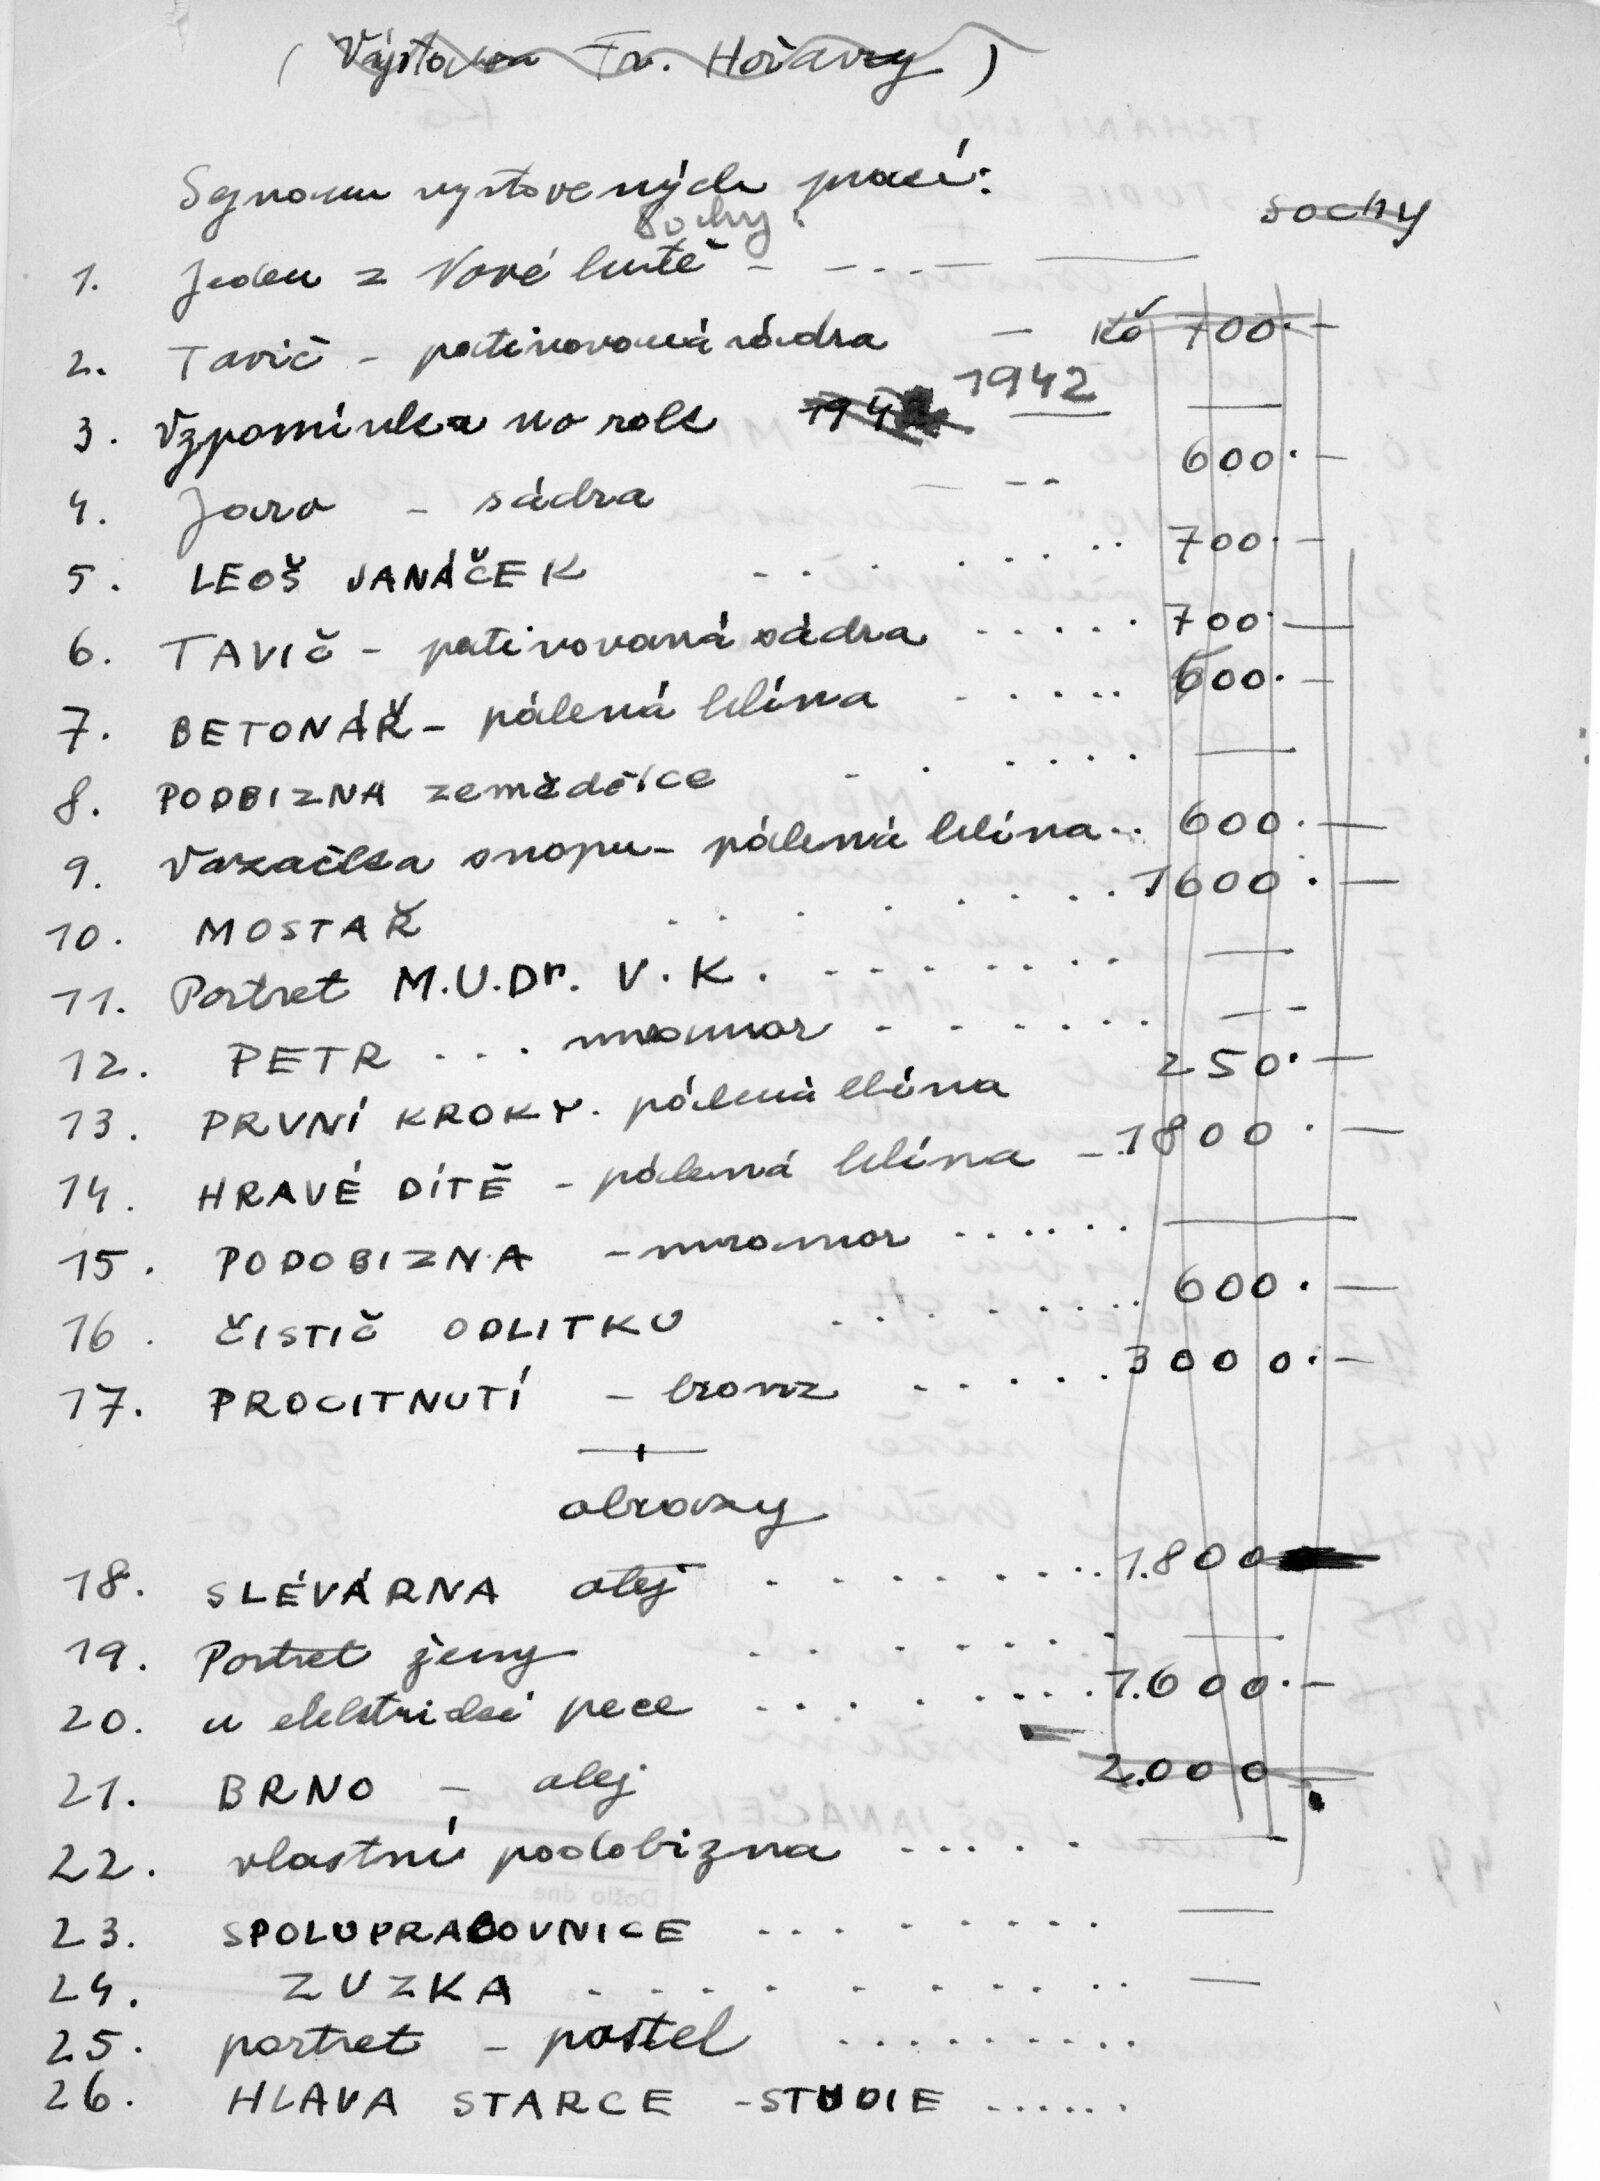 ( Výstava Fr. Hořavy )
Seznam vystavených prací:
sochy
sochy:
1. Jeden z Nové hutě - - . . - —
2. Tavič - patinovaná sádra - Kč 700.-
3. Vzpomínka na rok 1942 1942 —
4. Jaro - sádra - - - 600.-
5. LEOŠ JANÁČEK - . . . . . . . 700.-
6. TAVIČ - patinovaná sádra . . . . . 700.-
7. BETONÁŘ - pálená hlína . . . . . 600.-
8. PODBIZNA zemědělce - . . . . . —
9. Vazačka snopu - pálená hlína . . 600.-
10. MOSTAŘ . . . . . . . . 1600.-
11. Portret M.U.Dr. V.K. . . . . . . . —
12. PETR . . . mramor . . . . . . —
13. PRVNÍ KROKY. pálená hlína 250.-
14. HRAVÉ DÍTĚ - pálená hlína - . 1800.-
15. PODOBIZNA - mramor . . . . . . —
16. ČISTIČ ODLITKU . . . . . . . 600.-
17. PROCITNUTÍ - bronz . . . . . 3000.-
obrazy
18. SLÉVÁRNA olej . . . . . . . . 1.800
19. Portret ženy . . . . . . . —
20. u elektrické pece . . . . . . . . 1.600.-
21. BRNO - olej 2.000
22. vlastní podobizna . . . . . —
23. SPOLUPRACOVNICE . . . . . . . —
24. ZUZKA . . . . . . . . . . —
25. portret - pastel . . . . . . . . .
26. HLAVA STARCE - STUDIE . . . . . .